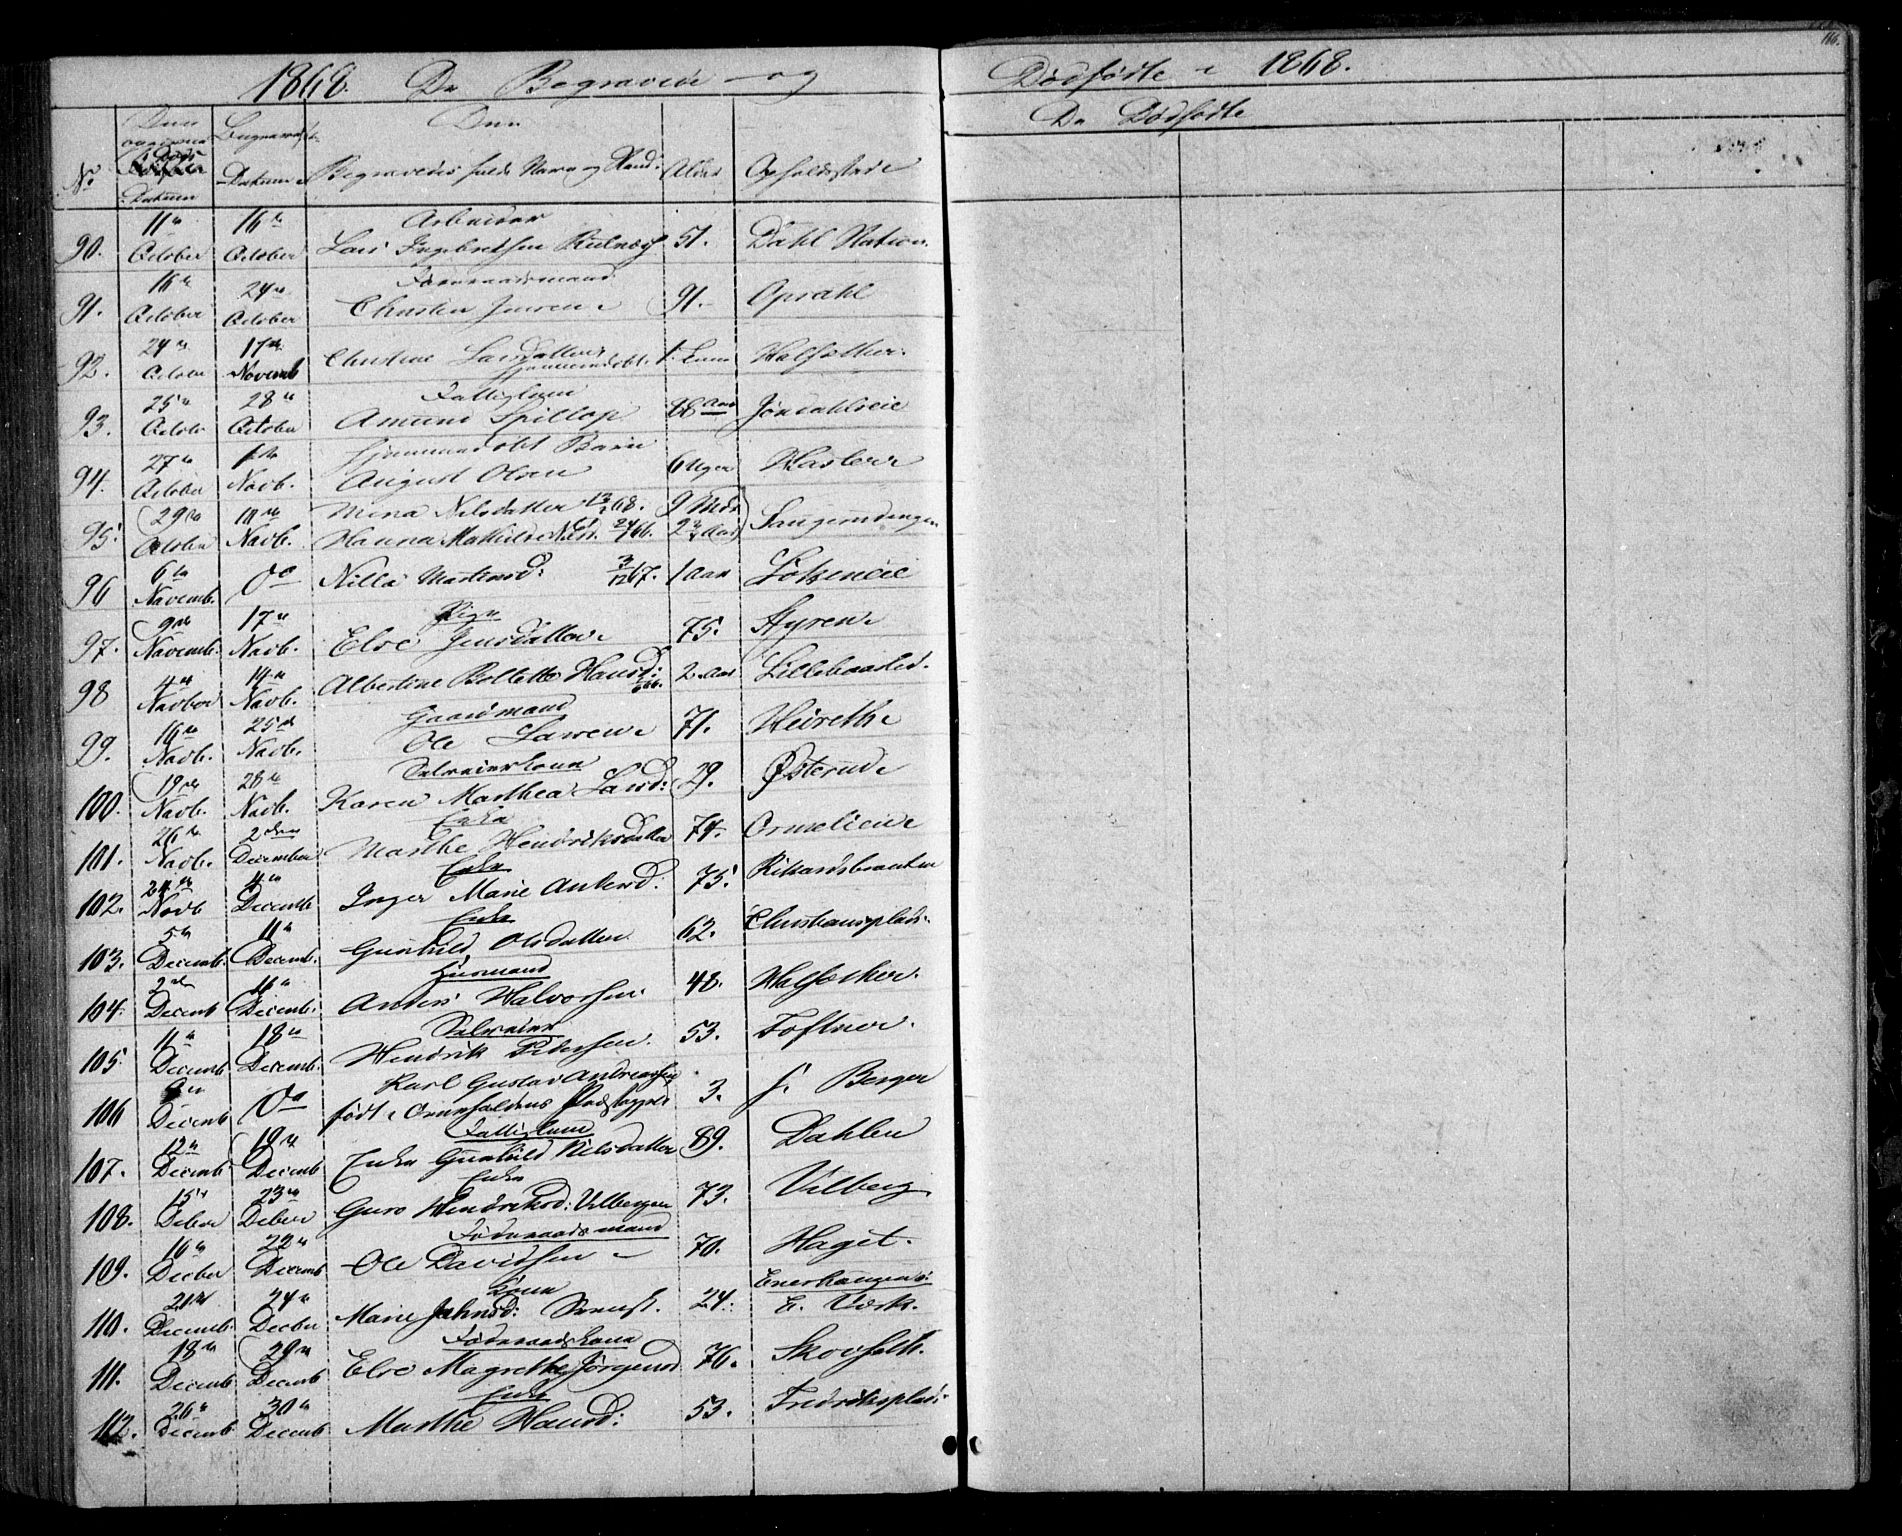 1868. De Begravede og
Dødfødte i 1868.
116.
De Dødfødte
No Døds Datum Begravelses Datum Den Begravedes fulde Navn og Stand: Alder Opholdsstæde
90. 11te October 16de October Arbeider
Lars Ingebretsen 51. Dahl Station
91. 16de October 24de October Føderaadsmand
Christen Jensen 91. Opsahl
92. 24de October 17de Novemb Christine Larsdatter
hjemmedøbt. Halfother
93. 25de Octob 28de October Fattiglem
Amund Spillop 88 Aar Jøndahlseie
94. 27de October 1ste Novb. Hjemmedøbt Barn
August Olsen 6 Uger Hasler
95. 29de October 11te Novb. Mina Nilsdatter 68. 9 Mdr
Hanna Mathilde Nilsd. 66. 2 Aar Saugerudengen
96 6te Novemb. Do Nilla Martensd: 3/12 67. 1 Aar
97. 9de Novemb. 17de Novb. Pige
Else Jensdatter 75. Styren
98 4de Novbr 14de Novb. Albertine Bollette Hansd: 2 Aar Lillebaasled.
99. 16de Novb. 25de Novb. Gaardmand
Ole Larsen 71. Heireth
100. 19de Novb. 28de Novb. Selveierkone
Karen Marthea Larsd: 29. Østerud
101. 26de Novb. 2den December Enke
Marthe Hendriksdatter 74. Ormelien
102. 24de Novb 4de Decemb Enke
Inger Marie Andersd: 75. Rikardsbraaten
103. 5te Decemb. 11te Decemb. Enke
Gunhild Olsdatter 62. Christiansplads.
104. 2den Decemb 11te Decemb. Huusmand
Anders Halvorsen 48. Halfother.
105. 11te Decemb 18de Decemb. Selveier
Hendrik Pedersen. 53. Toftner.
106 9de Decemb Do Karl Gustav Andreassen
født i Præstegjeld 3. f. Berger
107. 12te Decemb 19de Decemb Fattiglem
Enke Gunhild Nilsdatter 89. Dahlen
108. 15de Debr 23de Debr Enke
Guro Hendriksd: Vilbergen 73. Vilberg
109. 16de Decbr 22de Decemb Føderaadsmand
Ole Davidsen 70. Haget.
110. 21de Decemb. 24de Decbr Kone
Marie Johnsd: Svensk. 24. Enerhaugen
E. Værk.
111. 18de Decemb 29de Decemb Føderaadskone
Else Magrethe Jørgensd 76. Skovfelth.
112. 26de Decemb 30de Decemb Enke
Marthe Hansd: 53. Fredriksplads